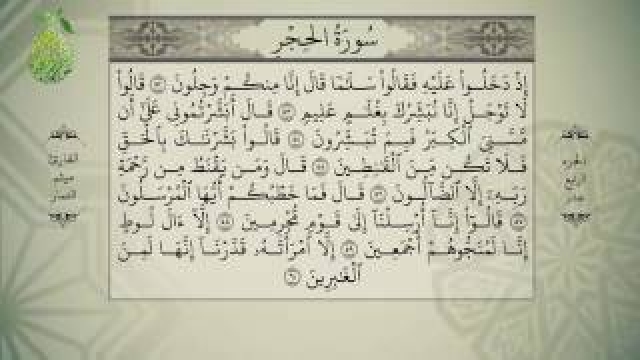 سُورَةُ الحِجْرِ
إِذْ دَخَلُوا۟ عَلَيْهِ فَقَالُوا۟ سَلَـٰمًا قَالَ إِنَّا مِنكُمْ وَجِلُونَ ۝٥٢ قَالُوا۟
لَا تَوْجَلْ إِنَّا نُبَشِّرُكَ بِغُلَـٰمٍ عَلِيمٍ ۝٥٣ قَالَ أَبَشَّرْتُمُونِى عَلَىٰٓ أَن
مَّسَّنِىَ ٱلْكِبَرُ فَبِمَ تُبَشِّرُونَ ۝٥٤ قَالُوا۟ بَشَّرْنَـٰكَ بِٱلْحَقِّ
فَلَا تَكُن مِّنَ ٱلْقَـٰنِطِينَ ۝٥٥ قَالَ وَمَن يَقْنَطُ مِن رَّحْمَةِ
رَبِّهِۦٓ إِلَّا ٱلضَّآلُّونَ ۝٥٦ قَالَ فَمَا خَطْبُكُمْ أَيُّهَا ٱلْمُرْسَلُونَ
۝٥٧ قَالُوٓا۟ إِنَّآ أُرْسِلْنَآ إِلَىٰ قَوْمٍ مُّجْرِمِينَ ۝٥٨ إِلَّآ ءَالَ لُوطٍ
إِنَّا لَمُنَجُّوهُمْ أَجْمَعِينَ ۝٥٩ إِلَّا ٱمْرَأَتَهُۥ قَدَّرْنَآ إِنَّهَا لَمِنَ
ٱلْغَـٰبِرِينَ ۝٦٠
الجزء
الرابع
عشر
القارئ